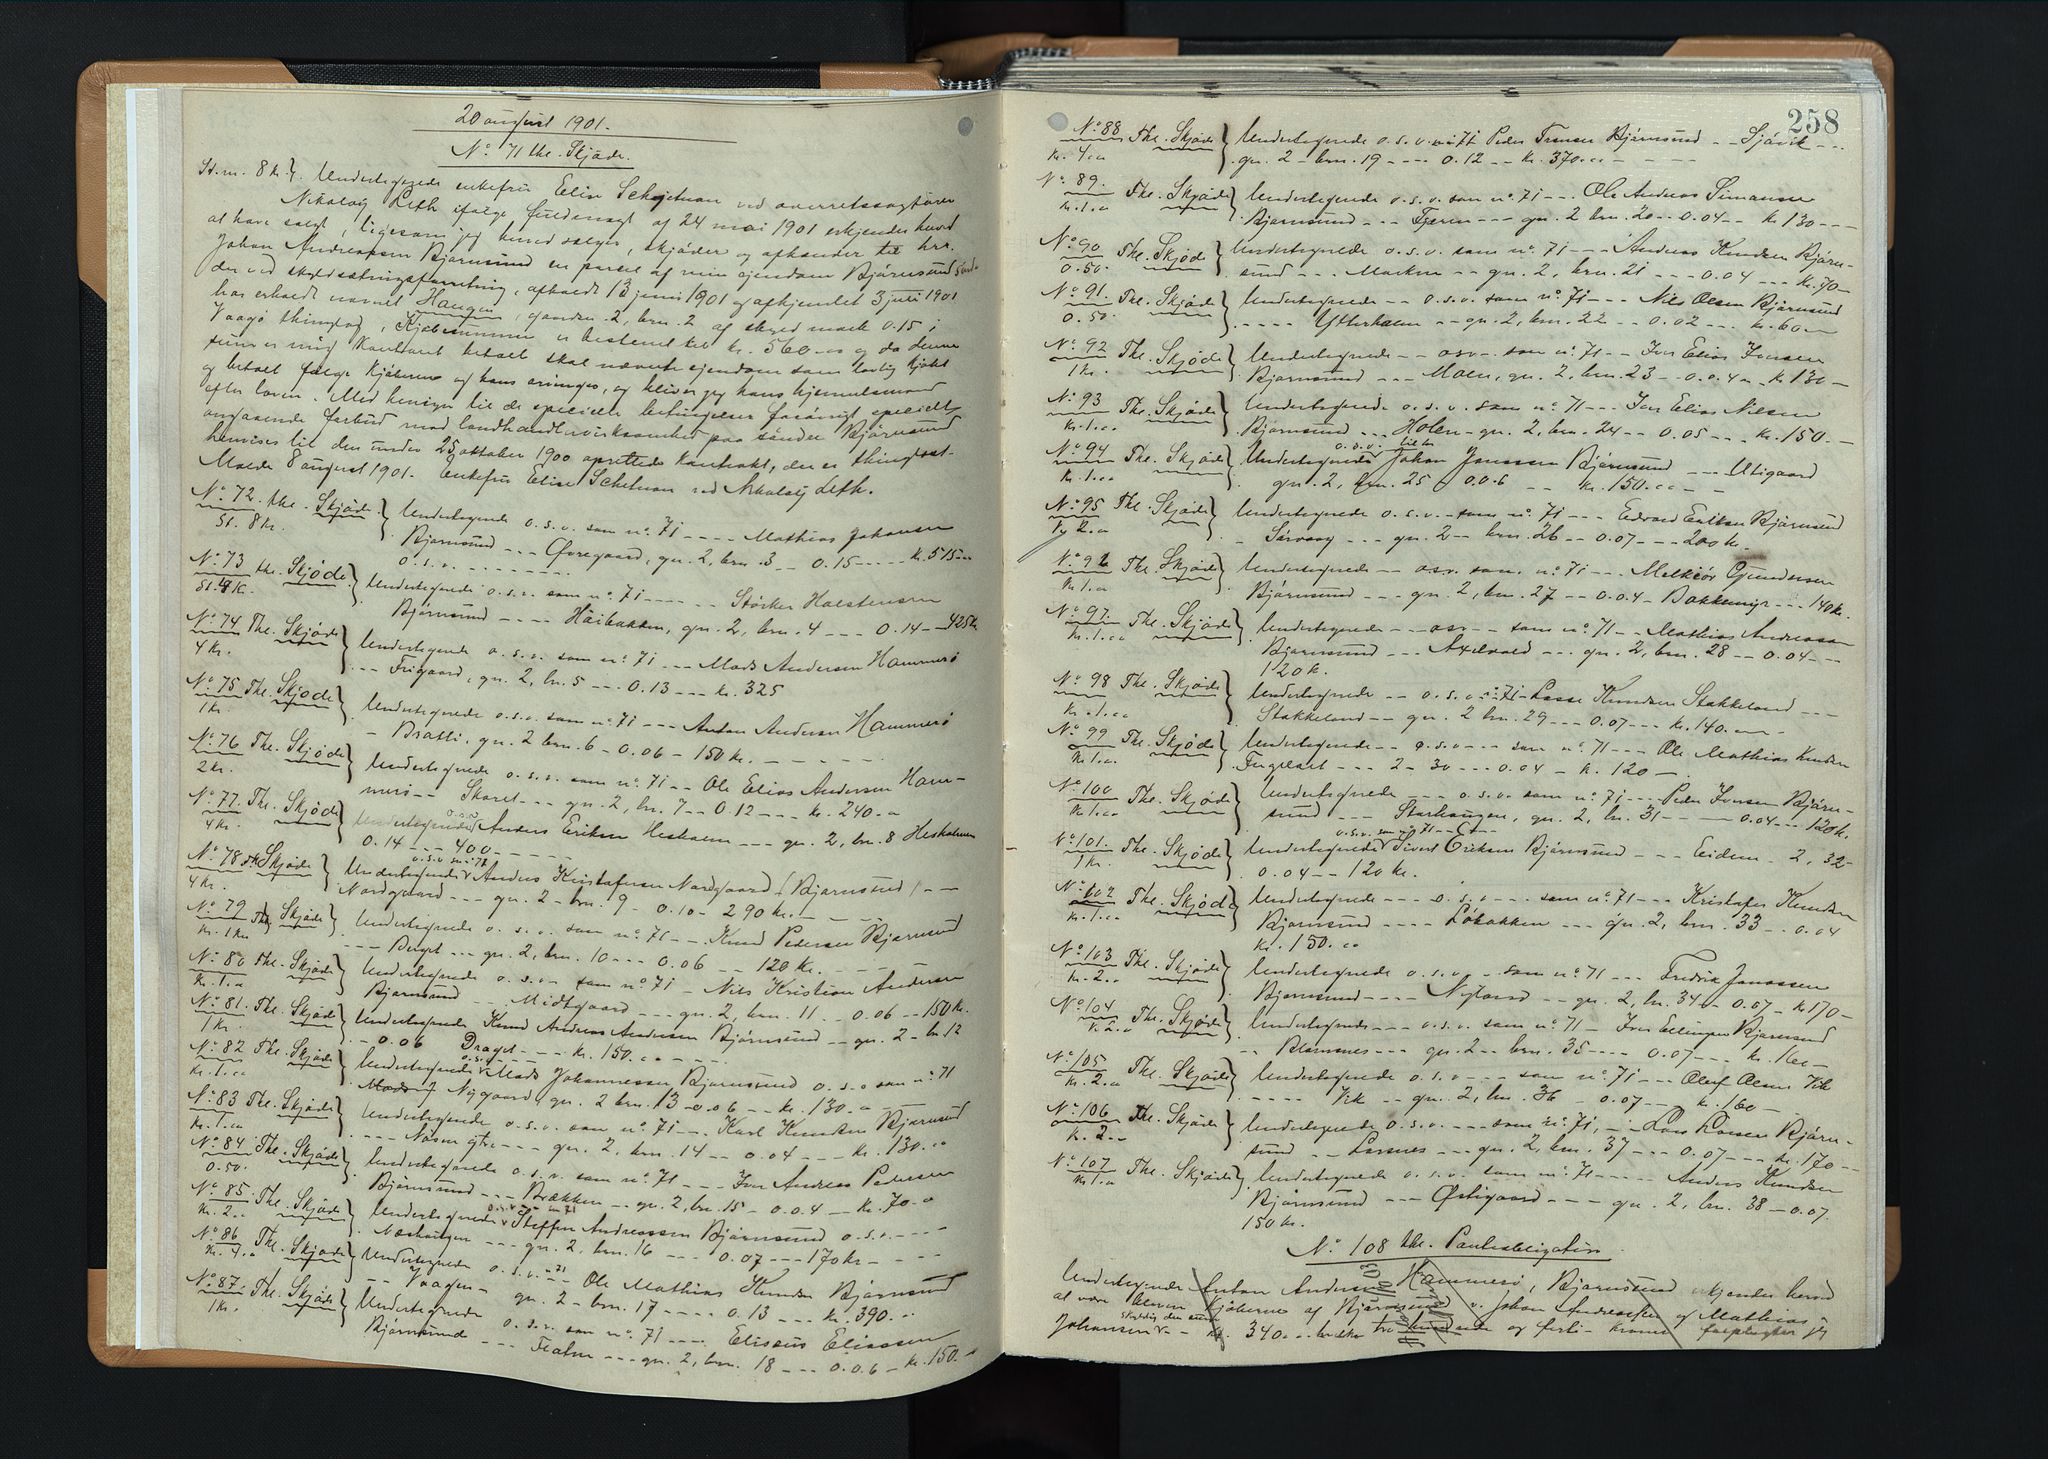 20 august 1901.
No 71 the. Skjøde.
St. m. 8 kr. Undertegnede enkefru Elise Schetnan ved overretssagfører
Nikolaij Leth ifølge fuldmagt af 24 mai 1901 erkjender herved
at have solgt, ligesom jeg herved sælger, skjøder og afhænder til hrr.
Johan Andreassen Bjørnsund en parsel af min eiendom Bjørnsund søndre
der ved skyldsætningsforretning, afholdt 13 juni 1901 og afhjemlet 3 juli 1901
har erholdt navnet Haugen, gaardsn. 2, brn. 2 af skyld mark 0.15 i
Vaagø thinglag, Kjøbesummen er bestemt til kr. 560.00 og da denne
sum er mig kontant betalt skal nævnte eiendom som lovlig kjøbt
og betalt følge kjøberne og hans arvinger, og bliver jeg hans hjemmelsmand
efter loven. Med hensyn til de specielle betingelser forøvrigt specielt
angaaende forbud mod landhandlervirksomhed paa søndre Bjørnsund
henvises til den under 25 oktober 1900 oprettede kontrakt, der er thinglæst.
Molde 8 august 1901. Enkefru Elise Schetnan ved Nikolaij Leth.
No 72. the. Skjøde. Undertegnede o.s.v. som no. 71 --- Mathias Johansen
St. 8 kr. Bjørnsund --- Øvregaard, gn. 2, brn. 3 -- 0.15 ---- kr. 515 --
o.s.v. --------
No 73 the. Skjøde Undertegnede o.s.v. som no. 71 ---- Størker Halstensen
St. 4 K. Bjørnsund ---- Haibakken, gn. 2, brn. 4 --- 0.14 -- 425 kr
No 74 The. Skjøde Undertegnede o.s.v. som no. 71 --- Mads Andersen Hammerø
4 kr. --- Frigaard, gn. 2, bn. 5 --- 0.13 --- kr. 325
No 75 The. Skjøde Undertegnede o.s.v. som no. 71 --- Anton Andersen Hammerø
1 kr. - Bratli, gn. 2 brn. 6 - 0.06 - 150 kr. - - - - -
No 76 The. Skjøde Undertegnede o.s.v. som no. 71 -- Ole Elias Andersen Ham-
2 kr. merø -- Skaret --- gn. 2, bn. 7 -- 0.12 --- kr. 240.00
No 77. The. Skjøde Undertegnede o.s.v. Anders Eriksen Hesholmen --- gn. 2, brn. 8 Hesholmen
4 kr. 0.14 --- 400 ------
No 78 the Skjøde Undertegnede o.s.v. som no. 71 Anders Kristofersen Nordgaard (Bjørnsund) --
4 kr. Nordgaard --- gn. 2 - brn. 9 - 0.10 - 290 kr. - - - -
No 79 The Skjøde Undertegnede o.s.v. som no. 71 -- Knud Pedersen Bjørnsund
kr. 1 kr. --- gn. 2, brn. 10 --- 0.06 -- 120 kr. - - -
No 80 The. Skjøde Undertegnede o.s.v. som no. 71 - Nils Kristian Andersen
kr. 1.00 Bjørnsund -- Midtgaard --- gn. 2, brn. 11 -- 0.06 -- 150 kr.
No 81. The. Skjøde Undertegnede Knud Andreas Andersen Bjørnsund -- gn. 2 - bn 12
1 kr. - 0.06 Draget --- kr. 150.00 ---
No 82 The. Skjøde Undertegnede o.s.v. Mads Johannessen Bjørnsund o.s.v. som no. 71
kr. 1.00 Nygaard, gn. 2 brn. 13 - 0.06 -- kr. 130.00
No 83 The. Skjøde Undertegnede o.s.v. som no. 71 -- Karl Knudsen Bjørnsund
kr. 1.00 --- gn. 2, brn. 14 -- 0.04 --- kr. 130.00
No 84 The. Skjøde Undertegnede o.s.v. som no. 71 --- Iver Andreas Pedersen
0.50. Bjørnsund --- Brækken -- gn. 2, brn. 15 - 0.04 -- kr. 70.00
No 85. The. Skjøde Undertegnede o.s.v. som no 71 Steffen Andreassen Bjørnsund o.s.v. ---
kr. 2.00 Neshaugen --- gn. 2, brn. 16 --- 0.07 --- 170 kr - - -
No 86 The. Skjøde Undertegnede o.s.v. no 71 Ole Mathias Knudsen Bjørnsund
kr. 4.00 -- Vaagen - gn. 2 - brn. 17 ---- 0.13 --- kr. 390.00
No 87. The. Skjøde Undertegnede o.s.v. som no. 71 --- Eliseus Eliassen
1 kr. Bjørnsund --- gn. 2, brn. 18 --- 0.06 - kr. 150.00
258
No 88 The. Skjøde Undertegnede o.s.v. no 71 Peder Bjørnsund -- Sjøvik --
kr. 4.00 gn. 2 - brn. 19 --- 0.12 -- kr. 370.00 --
No 89. The. Skjøde Undertegnede o.s.v. som no. 71 --- Ole Andreas Simonsen
kr. 1.00 Bjørnsund --- Fjæren --- gn. 2 brn. 20 -- 0.04 -- kr 130 ---
No 90 The. Skjøde Undertegnede o.s.v. som no. 71 --- Anders Knudsen Bjørn-
0.50. sund --- Marken -- gn. 2, brn. 21 --- 0.04 --- kr. 70 --
No 91. The. Skjøde Undertegnede -- o.s.v. som no. 71 --- Nils Olsen Bjørnsund
0.50. ---- Ytterholm -- gn. 2, brn. 22 -- 0.02 --- kr. 60 --
No 92 The. Skjøde Undertegnede -- osv. som no. 71 -- Iver Elias Iversen
1 kr. Bjørnsund --- Moen, gn. 2, brn. 23 - 0.04 - kr 130 --
No 93 The. Skjøde Undertegnede o.s.v. som no. 71 --- Iver Elias Nilsen
kr. 1.00 Bjørnsund --- Holen - gn. 2, brn. 24 -- 0.05 --- kr. 150. --
No 94 The. Skjøde Undertegnede o.s.v. Johan Jonassen Bjørnsund --- Utigaard
kr. 1.00 gn. 2, brn. 25 0.06 -- kr. 150.00 --
No 95 The. Skjøde Undertegnede o.s.v. - som no. 71 --- Edvard Eriksen Bjørnsund
kr 2.00 - Sørvaag --- gn. 2 -- brn. 26 -- 0.07 --- 200 kr.
No 96 The. Skjøde Undertegnede -- osv. som no. 71 --- Melkiør Gundersen
kr. 1.00 Bjørnsund --- gn. 2, brn. 27 -- 0.04 - Bakkemyr --- 140 kr.
No 97. The. Skjøde Undertegnede --- osv -- som no. 71 -- Mathias Andreassen
kr. 1.00 Bjørnsund --- Axelvold --- gn. 2, brn. 28 -- 0.04 ---
120 kr.
No 98 The. Skjøde Undertegnede -- o.s.v. no 71 - Lasse Knudsen Stakkeland ---
kr. 1.00 Stakkeland -- gn. 2 brn. 29 --- 0.07 --- kr. 140. --
No 99 The. Skjøde Undertegnede -- o.s.v. -- som no. 71 --- Ole Mathias Knudsen
kr 1.00 --- 2 - 30 --- 0.04 - k. 120 --
No 100 The. Skjøde Undertegnede --- o.s.v. som no. 71 --- Peder Iversen Bjørn-
kr. 1.00 sund --- Storhaugen, gn. 2, bn. 31 ---- 0.04 --- 120 k.
No 101. The. Skjøde Undertegnede o.s.v. som no 71 Sivert Eriksen Bjørnsund --- Eidem - 2, 32 -
1 kr. 0.04 -- 120 kr.
No 102 The. Skjøde Undertegnede --- o.s.v. --- som no. 71 --- Kristofer Knudsen
kr. 1.00 Bjørnsund ---- Løbakken -- gn. 2, brn. 33 -- 0.04
kr. 150.00
No 103 The. Skjøde Undertegnede o.s.v. -- som no. 71 --- Fredrik Jonassen
kr. 2.00 Bjørnsund ---- -- gn. 2, bn. 34 -- 0.07 - kr 170 --
No 104 The. Skjøde Undertegnede --- o.s.v. som no. 71 - Iver Ellingsen Bjørnsund
kr. 2.00 -- gn. 2 -- brn. 35 ---- 0.07 --- kr. 160 --
No 105 The. Skjøde Undertegnede o.s.v. --- som no. 71 --- Oluf Olsen Vik
kr. 2.00 ---- Vik -- gn. 2, bn. 36 - 0.07 -- kr. 160 --
No 106 The. Skjøde Undertegnede o.s.v. --- som no. 71, -- Lars Larsen Bjørn-
kr. 2 -- sund -- Larsnes --- gn. 2, brn. 37 --- 0.07 --- kr. 170 --
No 107 The. Skjøde Undertegnede o.s.v. som no. 71 ---- Anders Knudsen
kr. 1.00 Bjørnsund --- Østigaard ---- gn. 2, brn. 38 -- 0.07.
150 kr.
No 108 the. Panteobligation
Undertegnede Anton Andersen Hammerø, Bjørnsund erkjender herved
at være bleven skyldig den med kjøberne af Bjørnsund v. Johan Andreassen og Mathias
Johansen - kr. 340.00 tre hundrede og førti kroner forpligter jeg